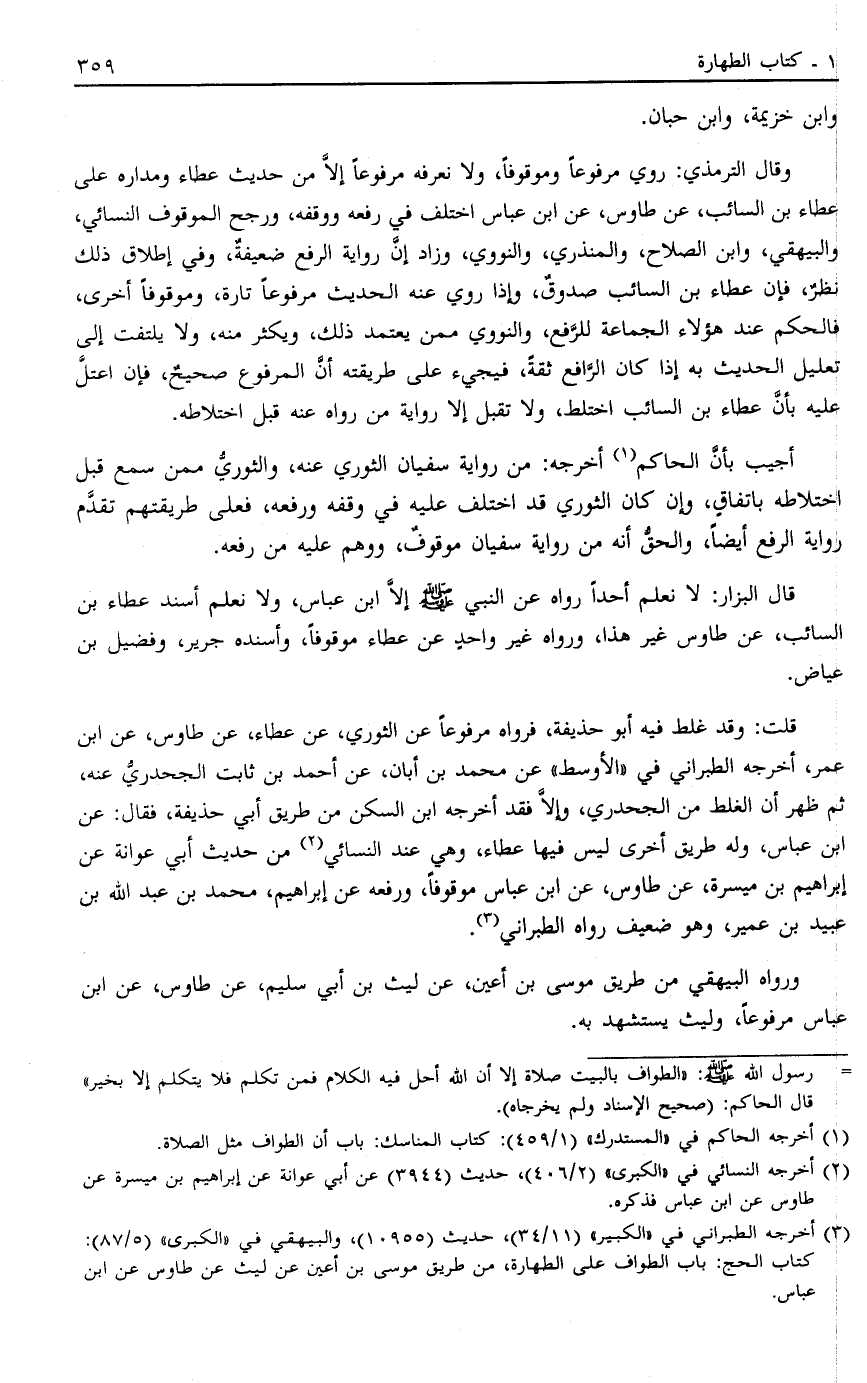 ١ ـ كتاب الطهارة ٣٥٩
وابن خزيمة، وابن حبان.
وقال الترمذي: روي مرفوعاً وموقوفاً، ولا نعرفه مرفوعاً إلاَّ من حديث عطاء ومداره على
عطاء بن السائب، عن طاوس، عن ابن عباس اختلف في رفعه ووقفه، ورجح الموقوف النسائي،
والبيهقي، وابن الصلاح، والمنذري، والنووي، وزاد إنَّ رواية الرفع ضعيفةٌ، وفي إطلاق ذلك
نظرٌ، فإن عطاء بن السائب صدوقٌ، وإذا روي عنه الحديث مرفوعاً تارة، وموقوفاً أخرى،
فالحكم عند هؤلاء الجماعة للرَّفع، والنووي ممن يعتمد ذلك، ويكثر منه، ولا يلتفت إلى
تعليل الحديث به إذا كان الرَّافع ثقةً، فيجيء على طريقته أنَّ المرفوع صحيحٌ، فإن اعتلَّ
عليه بأنَّ عطاء بن السائب اختلط، ولا تقبل إلا رواية من رواه عنه قبل اختلاطه.
أجيب بأنَّ الحاكم(١) أخرجه: من رواية سفيان الثوري عنه، والثوريُّ ممن سمع قبل
اختلاطه باتفاقٍ، وإن كان الثوري قد اختلف عليه في وقفه ورفعه، فعلى طريقتهم تقدَّم
رواية الرفع أيضاً، والحقُّ أنه من رواية سفيان موقوفٌ، ووهم عليه من رفعه.
قال البزار: لا نعلم أحداً رواه عن النبي ﷺ إلاَّ ابن عباس، ولا نعلم أسند عطاء بن
السائب، عن طاوس غير هذا، ورواه غير واحدٍ عن عطاء موقوفاً، وأسنده جرير، وفضيل بن
عياض.
قلت: وقد غلط فيه أبو حذيفة، فرواه مرفوعاً عن الثوري، عن عطاء، عن طاوس، عن ابن
عمر، أخرجه الطبراني في «الأوسط» عن محمد بن أبان، عن أحمد بن ثابت الجحدريُّ عنه،
ثم ظهر أن الغلط من الجحدري، وإلاَّ فقد أخرجه ابن السكن من طريق أبي حذيفة، فقال: عن
ابن عباس، وله طريق أخرى ليس فيها عطاء، وهي عند النسائي(٢) من حديث أبي عوانة عن
إبراهيم بن ميسرة، عن طاوس، عن ابن عباس موقوفاً، ورفعه عن إبراهيم، محمد بن عبد الله بن
عبيد بن عمير، وهو ضعيف رواه الطبراني(٣).
ورواه البيهقي من طريق موسى بن أعين، عن ليث بن أبي سليم، عن طاوس، عن ابن
عباس مرفوعاً، وليث يستشهد به.
= رسول الله ﷺ: «الطواف بالبيت صلاة إلا أن الله أحل فيه الكلام فمن تكلم فلا يتكلم إلا بخير»
قال الحاكم: (صحيح الإسناد ولم يخرجاه).
(١) أخرجه الحاكم في «المستدرك» (٤٥٩/١): كتاب المناسك: باب أن الطواف مثل الصلاة.
(٢) أخرجه النسائي في «الكبرى» (٤٠٦/٢)، حديث (٣٩٤٤) عن أبي عوانة عن إبراهيم بن ميسرة عن
طاوس عن ابن عباس فذكره.
(٣) أخرجه الطبراني في «الكبير» (٣٤/١١)، حديث (١٠٩٥٥)، والبيهقي في «الكبرى» (٨٧/٥):
كتاب الحج: باب الطواف على الطهارة، من طريق موسى بن أعين عن ليث عن طاوس عن ابن
عباس.